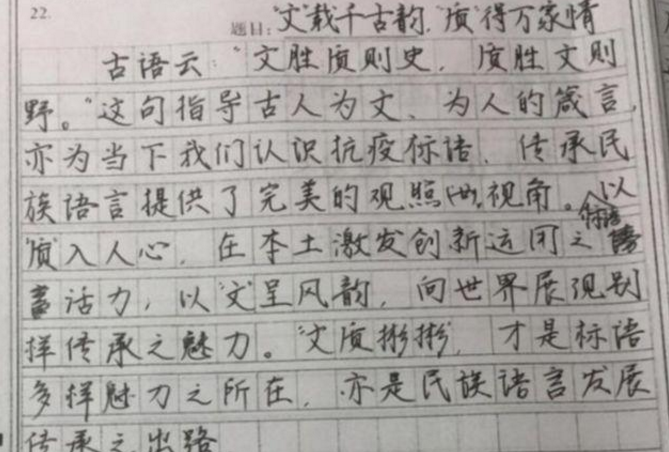 22.
题目:“文”载千古韵,“质”得万家情
古语云:“文胜质则史,质胜文则
野。”这句指导古人为文、为人的箴言,
亦为当下我们认识抗疫标语、传承民
族语言提供了完美的观照 视角。以
“质”入人心,在本土激发创新运用之标语
活力,以“文”呈风韵,向世界展现别
样传承之魅力。“文质彬彬”,才是标语
多样魅力之所在,亦是民族语言发展
传承之出路